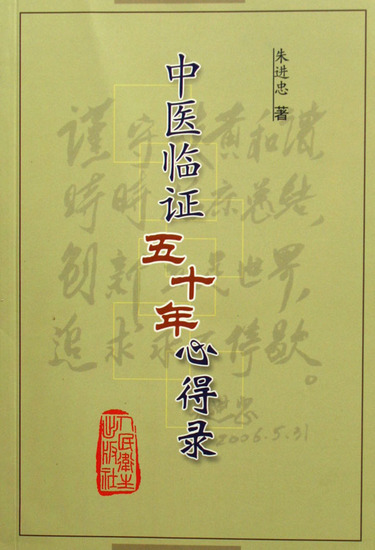 朱进忠 著
中医临证五十年心得录
谨守 黄和
時時 总结，
创新 世界，
追求 停歇。
2006.5.31
人民衛生
出版社